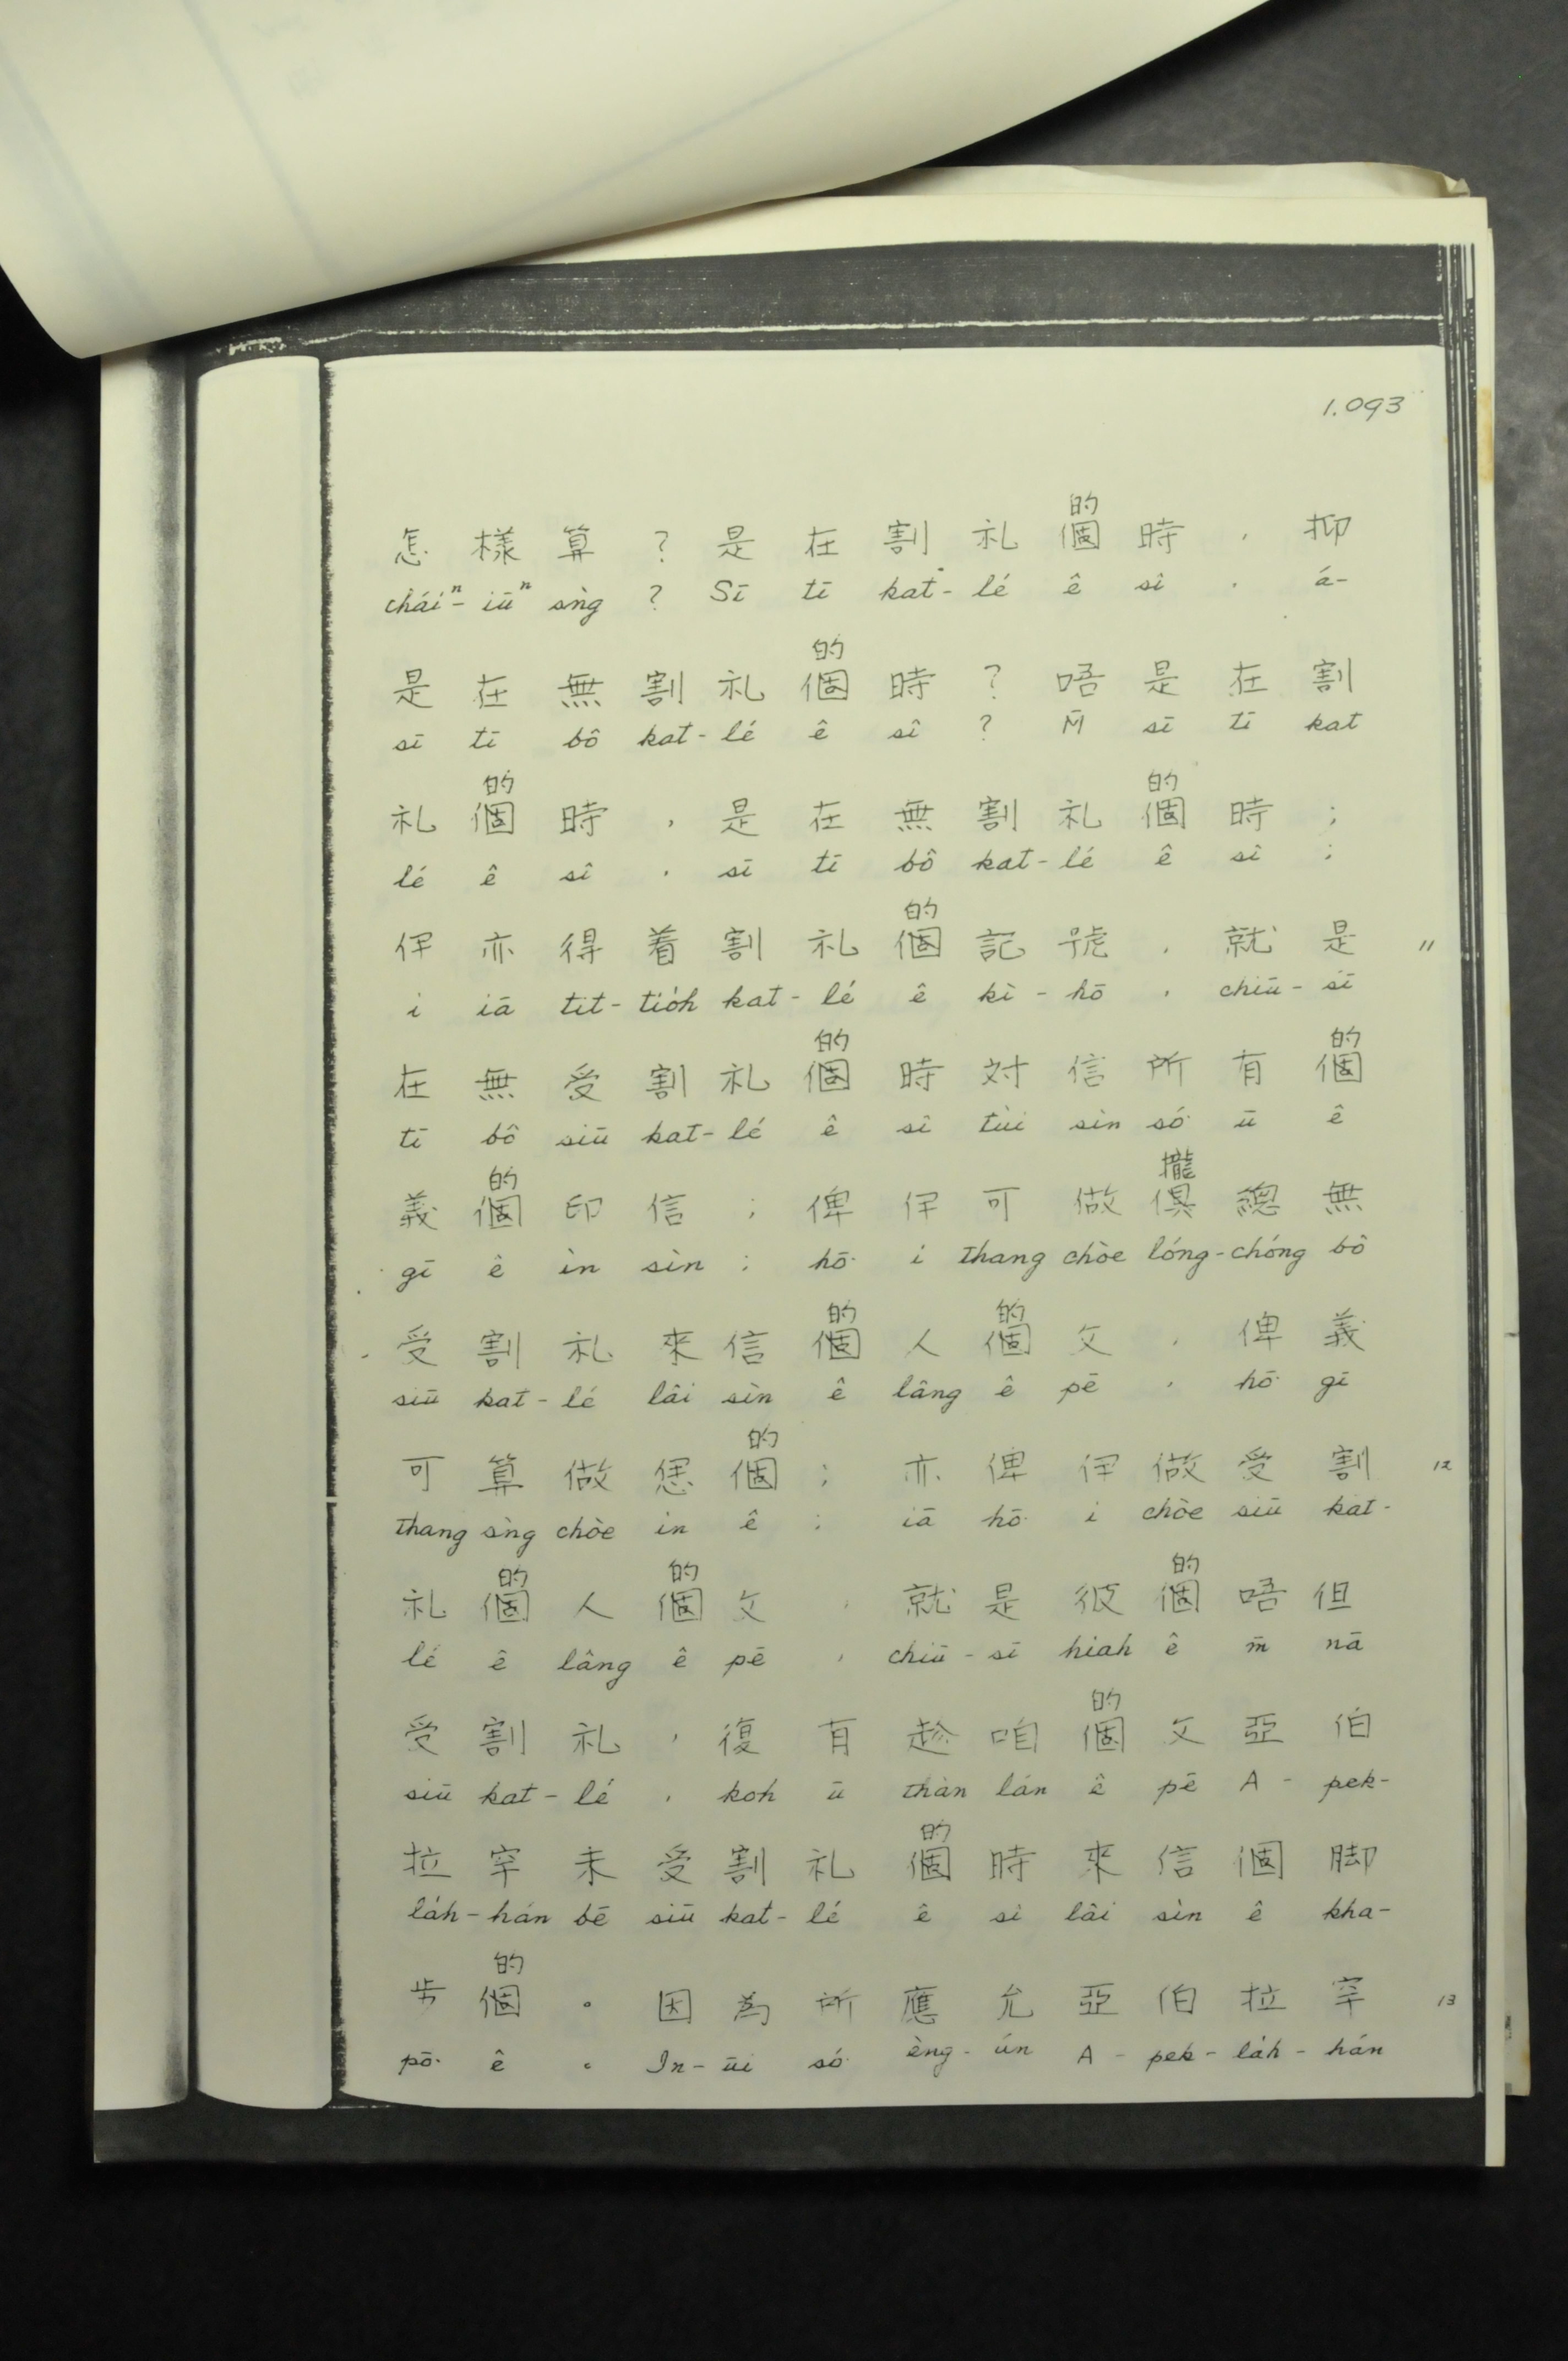 1.093
的
怎樣算？是在割礼個時，抑
cháiⁿ-iūⁿ sǹg ? Sī tī kat-lé ê sî , á-
的
是在無割礼個時？唔是在割
sī tī bô kat-lé ê sî ? M̄ sī tī kat
的 的
礼個時，是在無割礼個時；
lé ê sî , sī tī bô kat-lé ê sî ;
的
伊亦得着割礼個記號，就是 11
i iā tit-tio̍h kat-lé ê kì-hō , chiū-sī
的 的
在無受割礼個時対信所有個
tī bô siū kat-lé ê sî tùi sìn só͘ ū ê
的 攏
義個印信；俾伊可做俱總無
gī ê ìn sìn ; hō͘ i thang chòe lóng-chóng bô
的 的
受割礼來信個人個父，俾義
siū kat-lé lâi sìn ê lâng ê pē , hō͘ gī
的
可算做恁個；亦俾伊做受割 12
thang sǹg chòe in ê ; iā hō͘ i chòe siū kat-
的 的 的
礼個人個父，就是彼個唔但
lé ê lâng ê pē , chiū-sī hiah ê m̄ nā
的
受割礼，復有趁咱個父亞伯
siū kat-lé , koh ū thàn lán ê pē A-pek-
的
拉罕未受割礼個時來信個脚
la̍h-hán bē siū kat-lé ê sî lâi sìn ê kha-
的
步個。因為所應允亞伯拉罕 13
pō͘ ê 。 In-ūi só͘ èng-ún A-pek-la̍h-hán